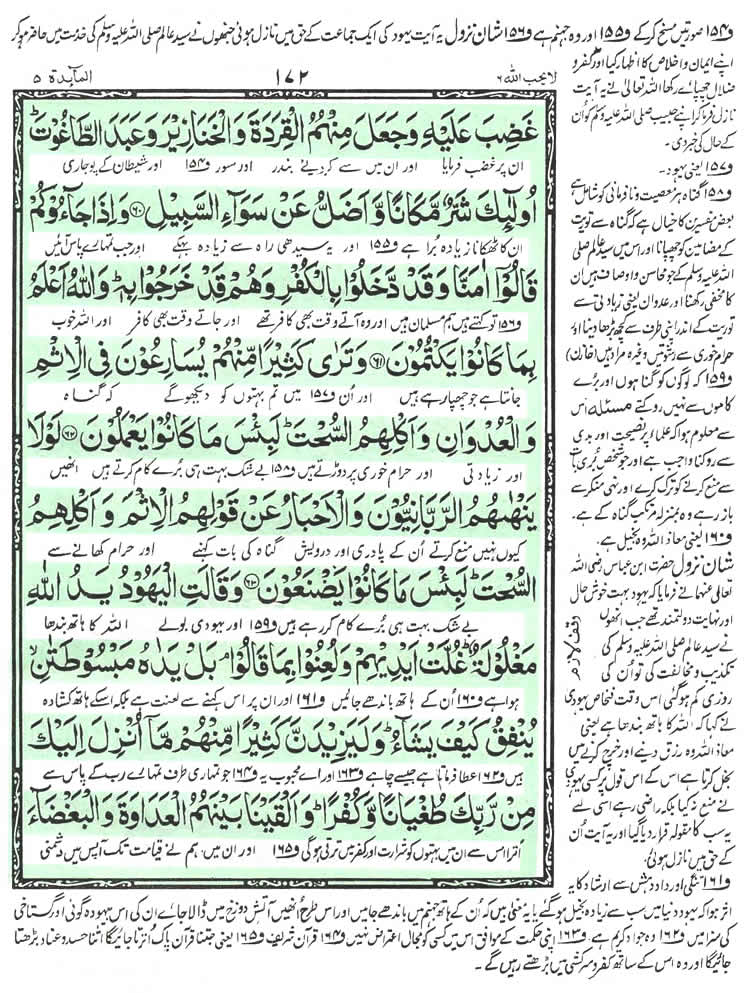 و۱۵۴ صورتیں مسخ کرکے و۱۵۵ اور وہ جہنم ہے و۱۵۶ شان نزول یہ آیت یہود کی ایک جماعت کے حق میں نازل ہوئی جنھوں نے سید عالم صلی اللہ علیہ وسلم کی خدمت میں حاضر ہوکر
لایحب اللہ ۶
۱۷۲
المآبدة ۵
غَضِبَ عَلَيْهِ وَجَعَلَ مِنْهُمُ الْقِرَدَةَ وَالْخَنَازِيْرَ وَعَبَدَ الطَّاغُوْتَ ؕ
ان پر غضب فرمایا اور ان میں سے کردیئے بندر اور سور و۱۵۴ اور شیطان کے پوجاری
اُولٰٓئِكَ شَرٌّ مَّكَانًا وَّاَضَلُّ عَنْ سَوَآءِ السَّبِيْلِ ۶۰ وَاِذَا جَآءُوْكُمْ
ان کا ٹھکانا زیادہ برا ہے و۱۵۵ اور یہ سیدھی راہ سے زیادہ بہکے اور جب تمہارے پاس آئیں
قَالُوْٓا اٰمَنَّا وَقَدْ دَّخَلُوْا بِالْكُفْرِ وَهُمْ قَدْ خَرَجُوْا بِهٖ ؕ وَاللّٰهُ اَعْلَمُ
و۱۵۶ تو کہتے ہیں ہم مسلمان ہیں اور وہ آتے وقت بھی کافر تھے اور جاتے وقت بھی کافر اور اللہ خوب
بِمَا كَانُوْا يَكْتُمُوْنَ ۶۱ وَتَرٰى كَثِيْرًا مِّنْهُمْ يُسَارِعُوْنَ فِي الْاِثْمِ
جانتا ہے جو چھپا رہے ہیں اور ان و۱۵۷ میں تم بہتوں کو دیکھوگے کہ گناہ
وَالْعُدْوَانِ وَاَكْلِهِمُ السُّحْتَ ؕ لَبِئْسَ مَا كَانُوْا يَعْمَلُوْنَ ۶۲ لَوْلَا
اور زیادتی اور حرام خوری پر دوڑتے ہیں و۱۵۸ بے شک بہت ہی برے کام کرتے ہیں انھیں
يَنْهٰىهُمُ الرَّبَّانِيُّوْنَ وَالْاَحْبَارُ عَنْ قَوْلِهِمُ الْاِثْمَ وَاَكْلِهِمُ
کیوں نہیں منع کرتے اُن کے پادری اور درویش گناہ کی بات کہنے اور حرام کھانے سے
السُّحْتَ ؕ لَبِئْسَ مَا كَانُوْا يَصْنَعُوْنَ ۶۳ وَقَالَتِ الْيَهُوْدُ يَدُ اللّٰهِ
بے شک بہت ہی بُرے کام کررہے ہیں و۱۵۹ اور یہودی بولے اللہ کا ہاتھ بندھا
مَغْلُوْلَةٌ ؕ غُلَّتْ اَيْدِيْهِمْ وَلُعِنُوْا بِمَا قَالُوْا ۘ بَلْ يَدٰهُ مَبْسُوْطَتٰنِ ۙ
ہوا ہے و۱۶۰ اُن کے ہاتھ باندھے جائیں و۱۶۱ اور ان پر اس کہنے سے لعنت ہے بلکہ اسکے ہاتھ کشادہ
يُنْفِقُ كَيْفَ يَشَآءُ ؕ وَلَيَزِيْدَنَّ كَثِيْرًا مِّنْهُمْ مَّآ اُنْزِلَ اِلَيْكَ
ہیں و۱۶۲ عطا فرماتا ہے جیسے چاہے و۱۶۳ اور اے محبوب یہ و۱۶۴ جو تمہاری طرف تمہارے رب کے پاس سے
مِنْ رَّبِّكَ طُغْيَانًا وَّكُفْرًا ؕ وَاَلْقَيْنَا بَيْنَهُمُ الْعَدَاوَةَ وَالْبَغْضَآءَ
اُترا اس سے ان میں بہتوں کو شرارت اور کفر میں ترقی ہوگی و۱۶۵ اور ان میں ہم نے قیامت تک آپس میں دشمنی
وقف لازم
اپنے ایمان و اخلاص کا اظہار کیا اور کفر و
ضلال چھپائے رکھا اللہ تعالیٰ نے یہ آیت
نازل فرماکر اپنے حبیب صلی اللہ علیہ وسلم کو اُن
کے حال کی خبر دی۔
و۱۵۷ یعنی یہود۔
و۱۵۸ گناہ ہر معصیت و نافرمانی کو شامل ہے
بعض مفسرین کا خیال ہے کہ گناہ سے توریت
کے مضامین کو چھپانا اور اس میں سید عالم صلی
اللہ علیہ وسلم کے جو محاسن و اوصاف ہیں ان
کا مخفی رکھنا اور عدوان یعنی زیادتی سے
توریت کے اندر اپنی طرف سے کچھ بڑھا دینا اور
حرام خوری سے رشوتیں وغیرہ مراد ہیں (خازن)
و۱۵۹ کہ لوگوں کو گناہوں اور برے
کاموں سے نہیں روکتے مسئلہ اس
سے معلوم ہوا کہ علماء پر نصیحت اور بدی
سے روکنا واجب ہے اور جو شخص بُری بات
سے منع کرنے کو ترک کرے اور نہی منکر سے
باز رہے وہ بمنزلہ مرتکب گناہ کے ہے۔
و۱۶۰ یعنی معاذ اللہ وہ بخیل ہے
شان نزول حضرت ابن عباس رضی اللہ
تعالیٰ عنہما نے فرمایا کہ یہود بہت خوش حال
اور نہایت دولتمند تھے جب انھوں
نے سید عالم صلی اللہ علیہ وسلم کی
تکذیب و مخالفت کی تو اُن کی
روزی کم ہوگئی اس وقت فنحاص یہودی
نے کہا کہ اللہ کا ہاتھ بندھا ہے یعنی
معاذ اللہ وہ رزق دینے اور خرچ کرنے میں
بخل کرتا ہے اس کے اس قول پر کسی یہودی
نے منع نہ کیا بلکہ راضی رہے اسی لئے
یہ سب کا مقولہ قرار دیا گیا اور یہ آیت اُن
کے حق میں نازل ہوئی۔
و۱۶۱ تنگی اور داد و دہش سے اس ارشاد کا یہ
اثر ہوا کہ یہود دنیا میں سب سے زیادہ بخیل ہوگئے یا یہ معنی ہیں کہ اُن کے ہاتھ جہنم میں باندھے جائیں اور اس طرح اُنھیں آتش دوزخ میں ڈالا جائے اُن کی اس بیہودہ گوئی اور گستاخی
کی سزا میں و۱۶۲ وہ جواد کریم ہے و۱۶۳ اپنی حکمت کے موافق اس میں کسی کو مجال اعتراض نہیں و۱۶۴ قرآن شریف و۱۶۵ یعنی جتنا قرآن پاک اُترتا جائیگا اتنا حسد و عناد بڑھتا
جائیگا اور وہ اس کے ساتھ کفر و سرکشی میں بڑھتے رہیں گے۔